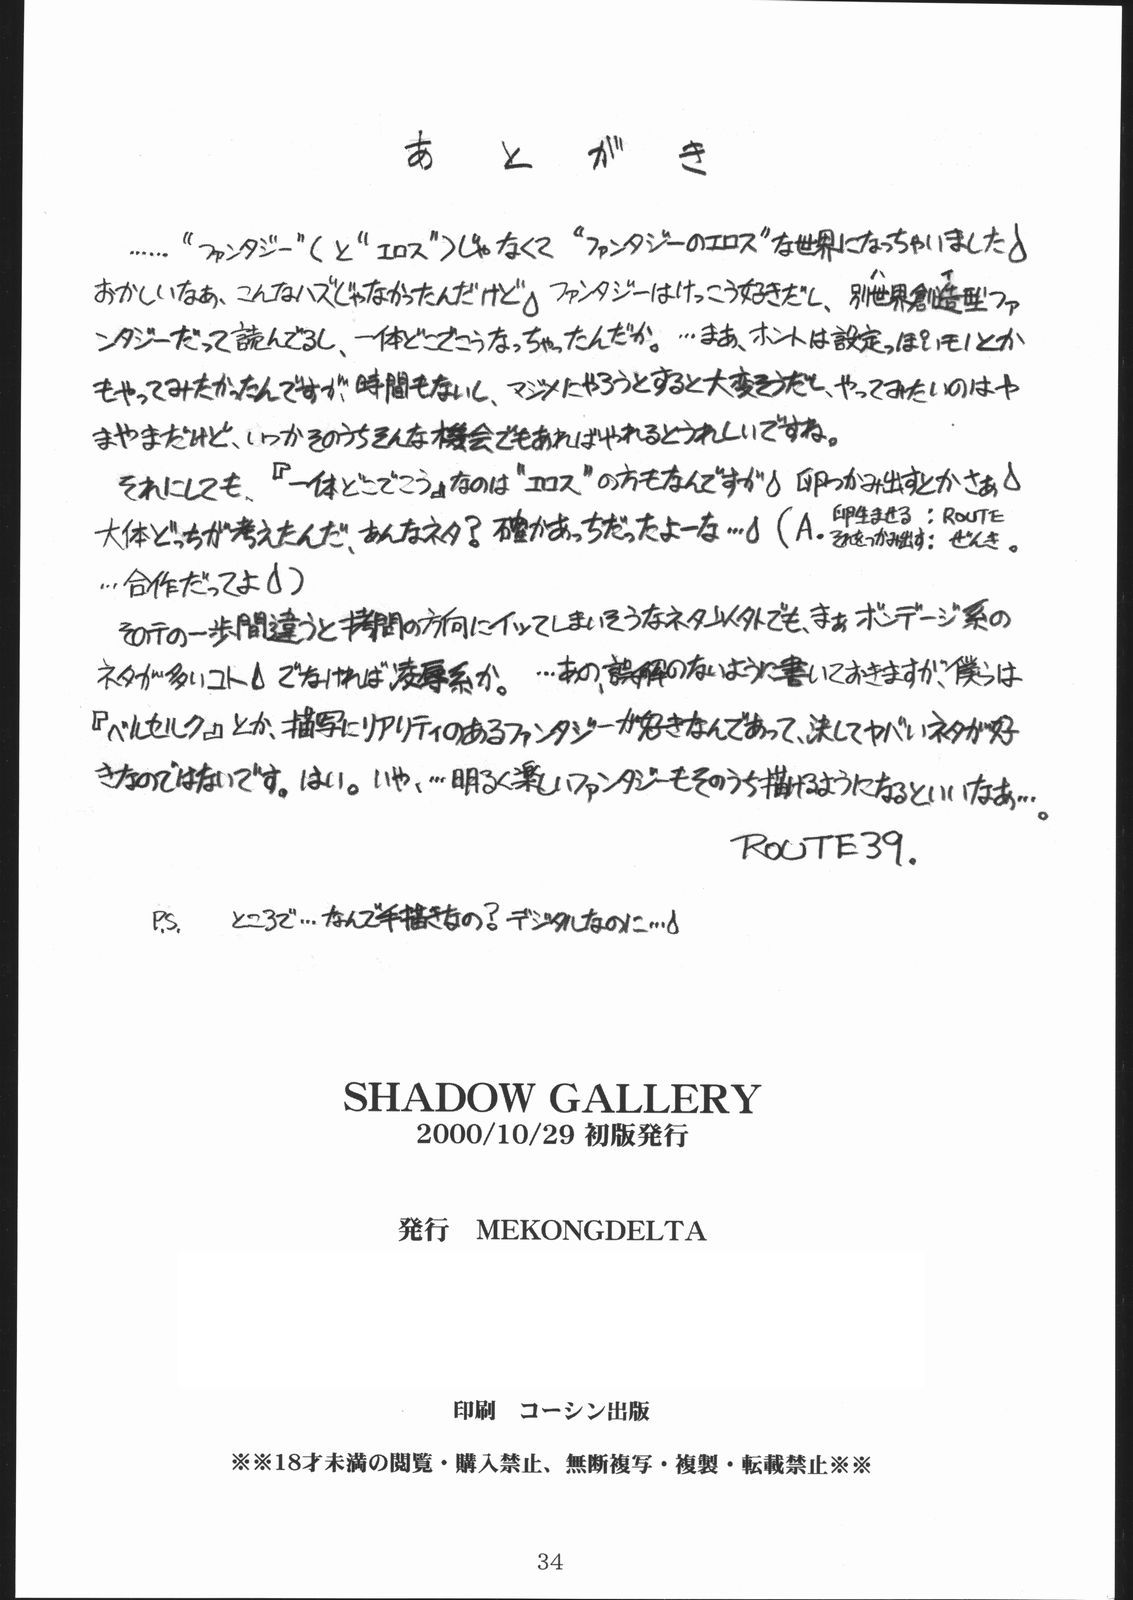 あとがき
……“ファンタジー”(と“エロス”)じゃなくて“ファンタジーのエロス”な世界になっちゃいました♪
おかしいなぁ、こんなハズじゃなかったんだけど♪ファンタジーはけっこう好きだし、別世界創造型ファ
ンタジーだって読んでるし、一体どこでこうなっちゃったんだか。…まぁ、ホントは設定っぽいモノとか
もやってみたかったんですが、時間もないし、マジメにやろうとすると大変そうだし、やってみたいのはや
まやまだけど、いつかそのうちそんな機会でもあればやれるとうれしいですね。
それにしても、『一体どこでこう』なのは“エロス”の方もなんですが♪卵つかみ出すとかさぁ♪
大体どっちが考えたんだ、あんなネタ?確かあっちだったよーな…♪(A.卵生ませる:ROUTE
それをつかみ出す:ぜんき。
…合作だってよ♪)
その一歩間違うと拷問の方向にイッてしまいそうなネタ以外でも、まぁボンデージ系の
ネタが多いコト♪でなければ凌辱系か。…あの、誤解のないように書いておきますが、僕らは
『ベルセルク』とか、描写にリアリティのあるファンタジーが好きなんであって、決してヤバいネタが好
きなのではないです。はい。いや、…明るく楽しいファンタジーもそのうち描けるようになるといいなぁ…。
ROUTE39.
P.S. ところで…なんで手描きなの?デジタルなのに…♪
SHADOW GALLERY
2000/10/29 初版発行
発行 MEKONGDELTA
印刷 コーシン出版
※※18才未満の閲覧・購入禁止、無断複写・複製・転載禁止※※
34